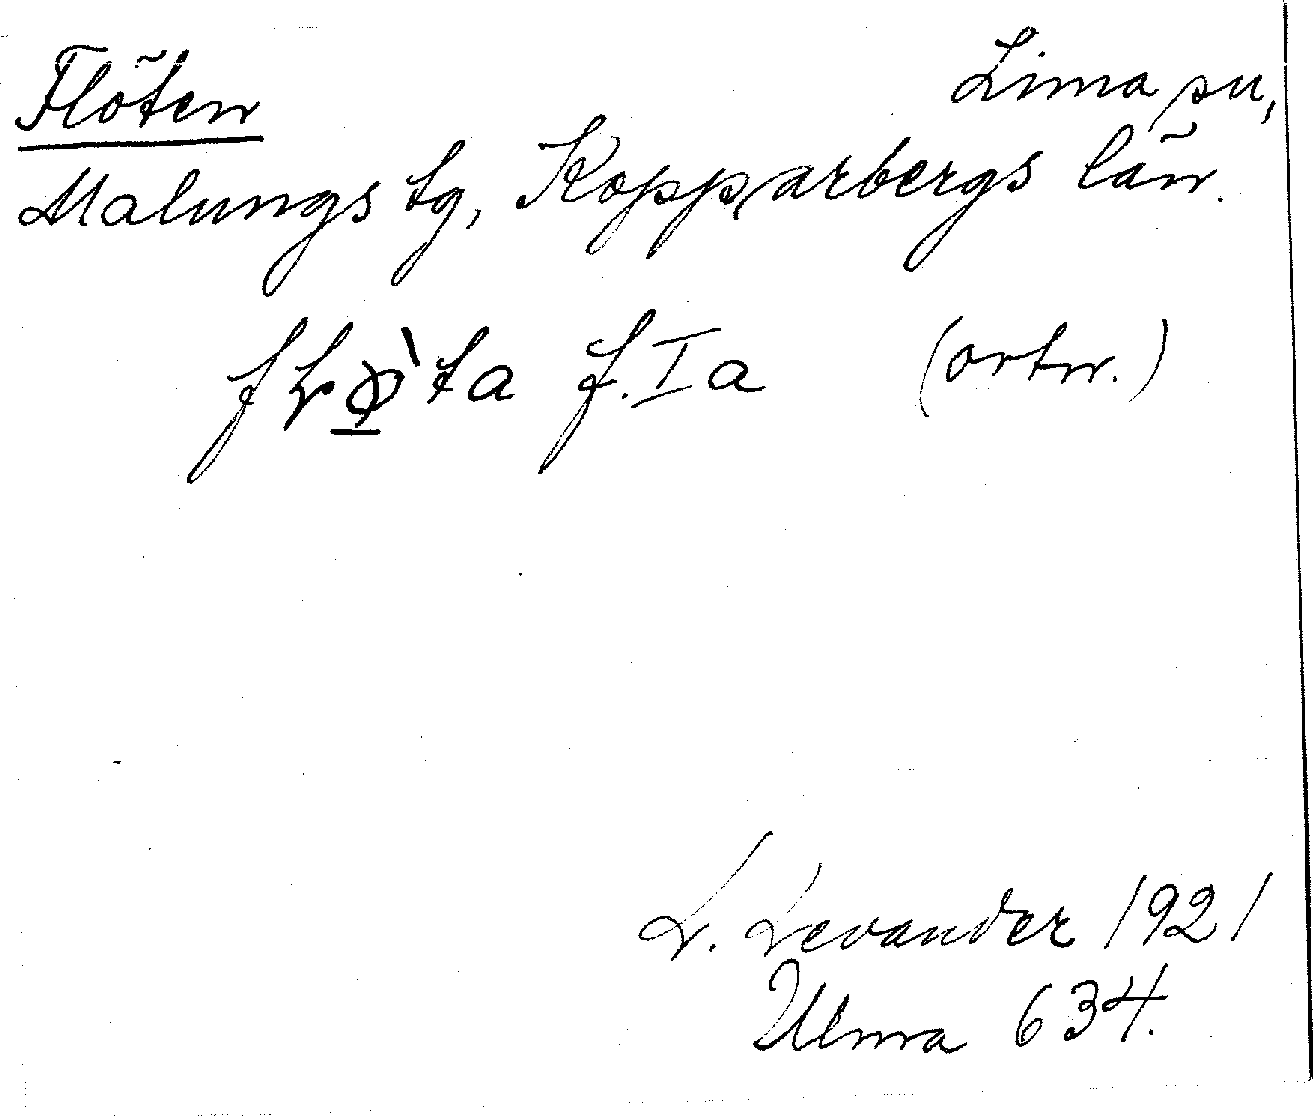 Flöten Lima sn,
Malungs tg, Kopparbergs län.
fḷø̀ta f. I a (ortn.)
L. Levander 1921
Ulma 634.